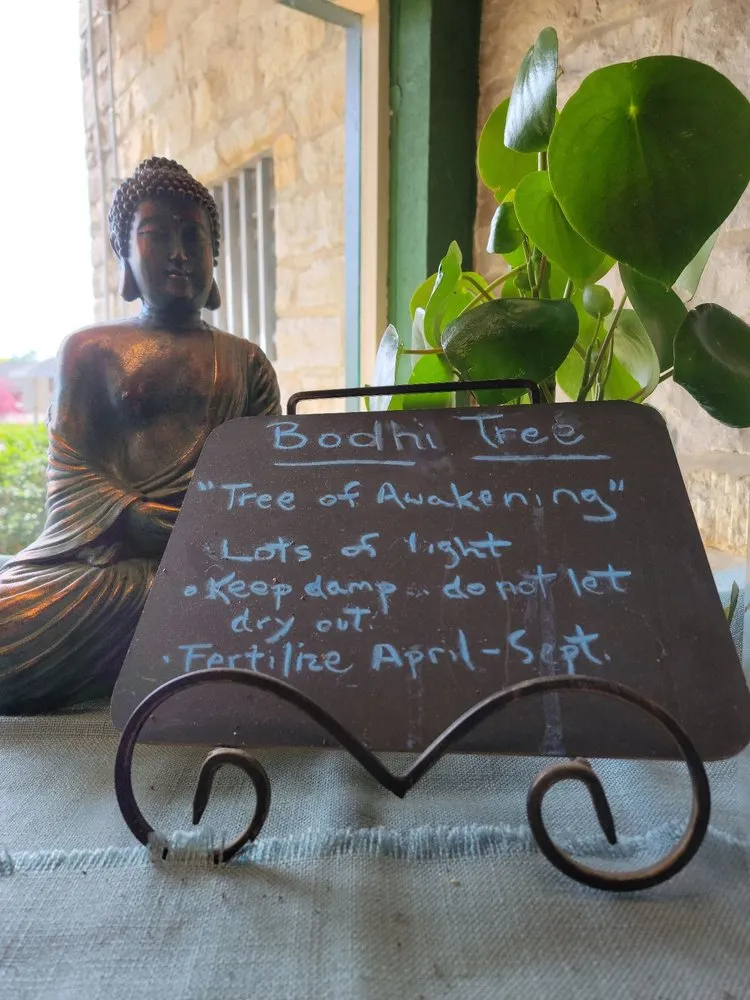 Bodhi Tree
"Tree of Awakening"
Lots of light
• Keep damp - do not let
dry out.
• Fertilize April - Sept.